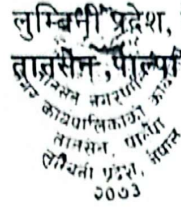 लुम्बिनी प्रदेश,
तानसेन, पाल्पा
तानसेन नगरपा
कार्यपालिकाको का
तानसेन, पाल्पा
लुम्बिनी प्रदेश, नेपाल
२०७३